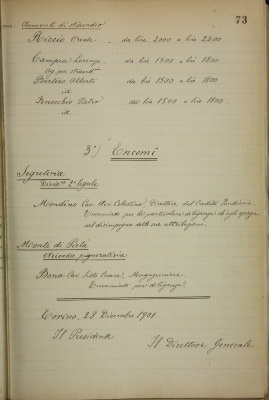 73
Aumenti di stipendio
Riccio Oreste da lire 2000 a lire 2200
Campia Lorenzo da lire 1500 a lire 1800
Bertero Alberto da lire 1500 a lire 1800
id.
Finocchio Pietro da lire 1500 a lire 1800
id.
3°) Encomi
Segreteria
Divisne 2a legale
Mondino Cav. Avv. Celestino, Direttore del Credito Fondiario
Encomiato per la particolare diligenza ch'egli spiega
nel disimpegno delle sue attribuzioni.
Monte di Pietà
Azienda pignoratizia
Bona Cav. Cesare, Magazziniere
Encomiato per diligenza.
Torino, 28 Dicembre 1901
Il Presidente
Il Direttore Generale